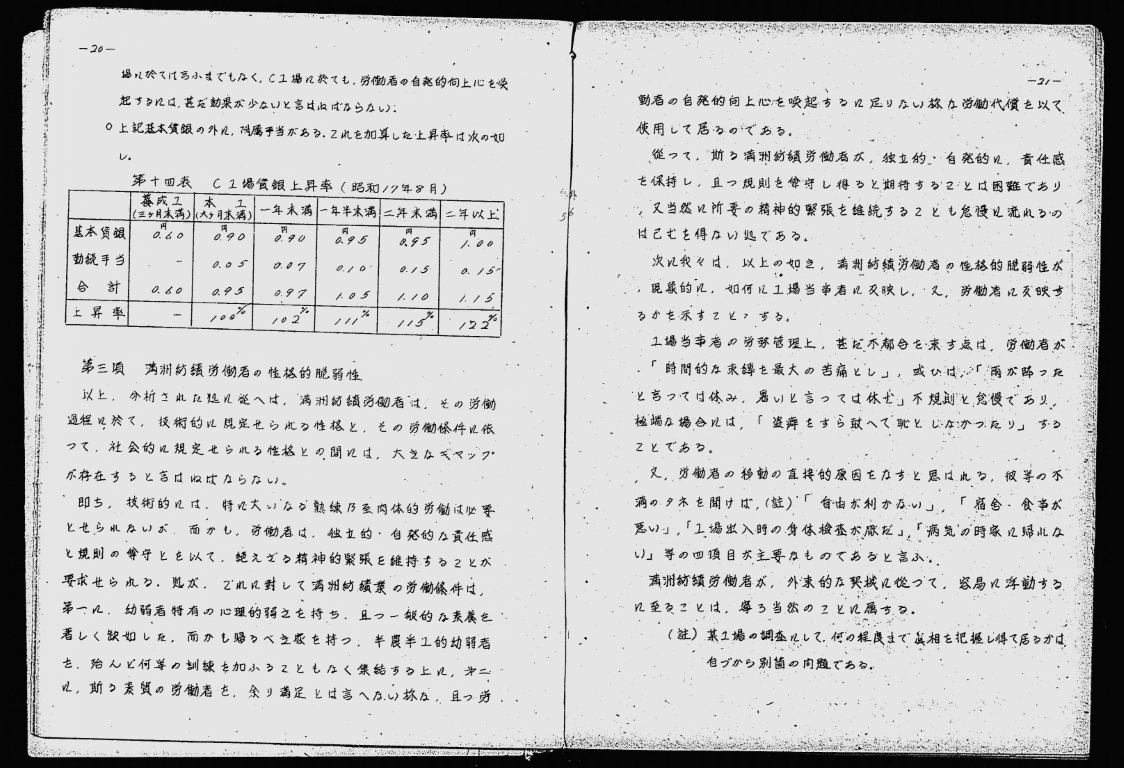 —20—
場に於ては言ふまでもなく、C工場に於ても、労働者の自発的向上心を喚
起するには、甚だ効果が少ないと言はねばならない。
○上記基本賃銀の外に、附属手当がある。之れを加算した上昇率は次の如
し。
第十四表 C工場賃銀上昇率(昭和17年8月)
養成工(三ヶ月未満) 本工(六ヶ月未満) 一年未満 一年半未満 二年未満 二年以上
基本賃銀 0.60円 0.90円 0.90円 0.95円 0.95円 1.00円
勤続手当 - 0.05 0.07 0.10 0.15 0.15
合計 0.60 0.95 0.97 1.05 1.10 1.15
上昇率 - 100% 102% 111% 115% 122%
第三項 満洲紡績労働者の性格的脆弱性
以上、分析された処に従へば、満洲紡績労働者は、その労働
過程に於て、技術的に規定せられる性格と、その労働條件に依
つて、社会的に規定せられる性格との間には、大きなギヤップ
が存在すると言はねばならない。
即ち、技術的には、特に大いなる熟練乃至肉体的労働は必要
とせられないが、而かも、労働者は、独立的・自発的な責任感
と規則の遵守とを以て、絶えざる精神的緊張を維持することが
要求せられる。処が、之れに対して満洲紡績業の労働條件は、
第一に、幼弱者特有の心理的弱さを持ち、且つ一般的な素養を
著しく缺如した、而かも帰るべき家を持つ、半農半工的幼弱者
を、殆んど何等の訓練を加ふることもなく集結する上に、第二
に、斯る素質の労働者を、余り満足とは言へない様な、且つ労
—21—
働者の自発的向上心を喚起するに足りない様な労働代償を以て
使用して居るのである。
從つて、斯る満洲紡績労働者が、独立的・自発的に、責任感
を保持し、且つ規則を遵守し得ると期待することは困難であり
、又当然に所要の精神的緊張を継続することも怠慢に流れるの
は已むを得ない処である。
次に我々は、以上の如き、満洲紡績労働者の性格的脆弱性が
、現象的に、如何に工場当事者に反映し、又、労働者に反映す
るかを示すことゝする。
工場当事者の労務管理上、甚だ不都合を来す点は、労働者が
、「時間的な束縛を最大の苦痛とし」、或ひは、「雨が降つた
と言つては休み、暑いと言つては休む」不規則と怠慢であり、
極端な場合には、「盗癖をすら敢へて恥としなかつたり」する
ことである。
又、労働者の移動の直接的原因をなすと思はれる、彼等の不
満のタネを聞けば、(註)「自由が利かない」、「宿舎・食事が
悪い」、「工場出入時の身体検査が厭だ」、「病気の時家に帰れな
い」等の四項目が主要なものであると言ふ。
満洲紡績労働者が、外来的な契機に從つて、容易に浮動する
に至ることは、寧ろ当然のことに属する。
(註)某工場の調査にして、何の程度まで真相を把握し得て居るかは
自づから別箇の問題である。